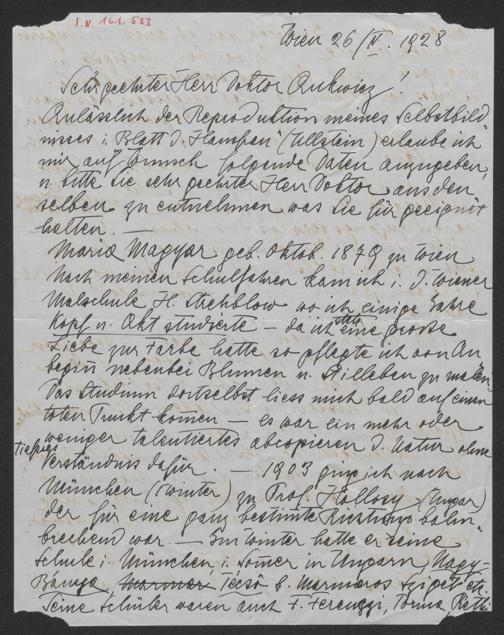 I.N. 161.533
Wien 26/II. 1928
Sehr geehrter Herr Doktor !
Anlässlich der Reproduktion meines Selbstbild
nisses i. Blatt d. (Ullstein) erlaube ich
mir auf Wunsch folgende Daten anzugeben,
u. bitte Sie sehr geehrter Herr Doktor aus den
selben zu entnehmen was Sie für geeignet
halten. —
Maria Magyar geb. Oktob. 1879 zu Wien
Nach meinen Schuljahren kam ich i. d. Wiener
Malschule H. Strehblow wo ich einige Jahre
Kopf u. Akt studierte — da ich stets eine grosse
Liebe zur Farbe hatte so pflegte ich von An
beginn nebenbei Blumen u. Stilleben zu malen
Das Studium dortselbst liess mich bald auf einen
toten Punkt komen — es war ein mehr oder
weniger talentiertes abcopieren d. Natur ohne
tieferes Verständnis dafür. — 1903 ging ich nach
München (Winter) zu Prof. Hollosy (Ungar)
der für eine ganz bestimte Richtung bahn-
brechend war. — Im Winter hatte er seine
Schule i. München, i. Somer in Ungarn, Nagy-
Banya, Tecsö b. Marmaros Sziget etc.
Seine Schüler waren auch F. Ferenzy, Torma, Réti